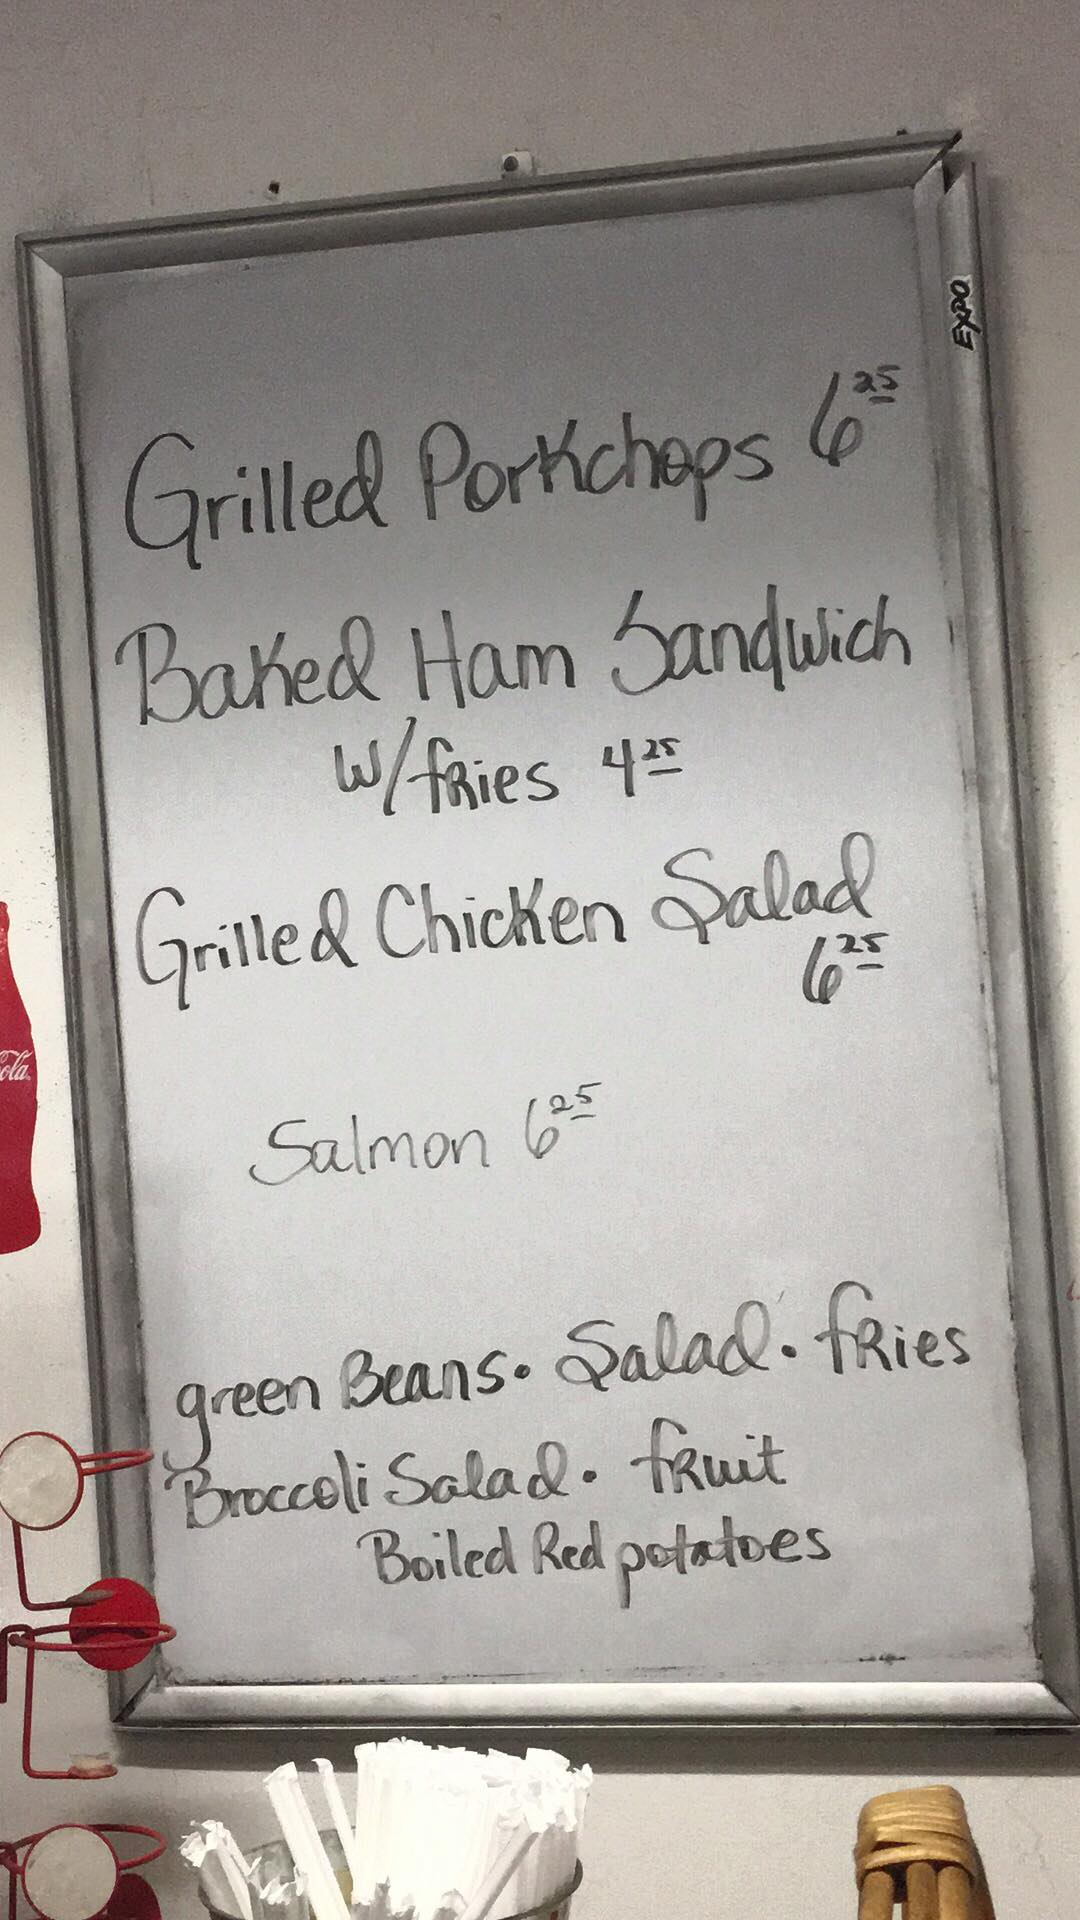 EXPO
Grilled Porkchops 6 25
Baked Ham Sandwich
w/fries 4 25
Grilled Chicken Salad
6 25
Salmon 6 25
green Beans • Salad • fries
Broccoli Salad • fruit
Boiled Red potatoes
ola